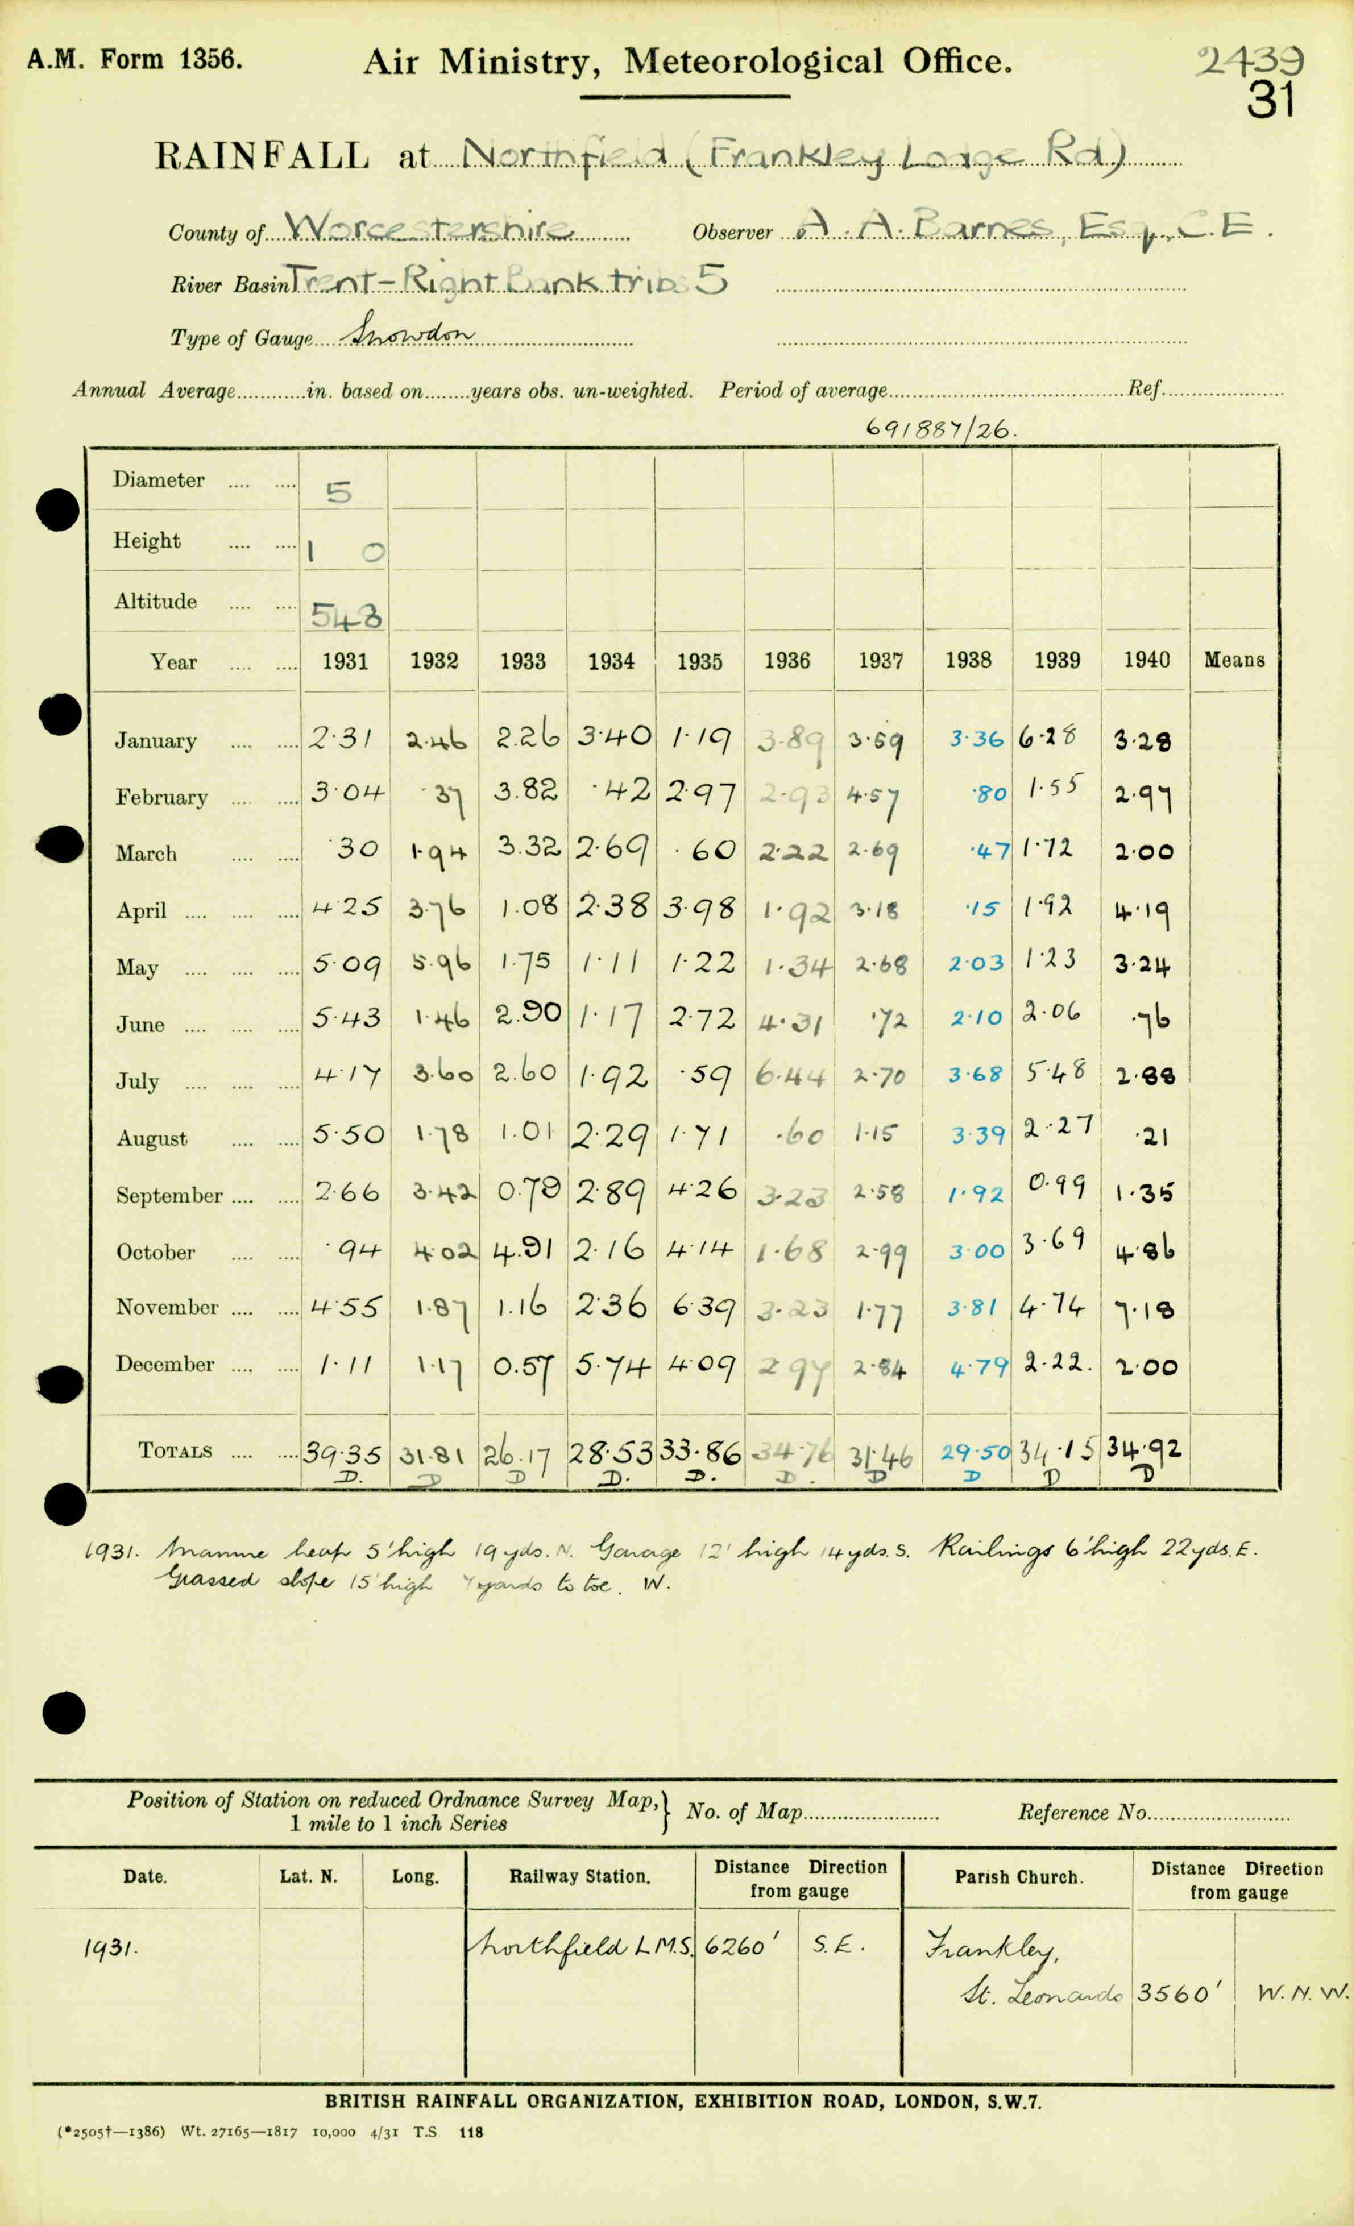 A.M. Form 1356. Air Ministry, Meteorological Office. 2439
31
RAINFALL at Northfield (Frankley Lodge Rd)
County of Worcestershire Observer A. A. Barnes, Esq., C.E.
River Basin Trent-Right Bank tribs 5
Type of Gauge Snowdon
Annual Average in. based on years obs. un-weighted. Period of average Ref.
691887/26.
Diameter 5
Height 1 0
Altitude 548
Year 1931 1932 1933 1934 1935 1936 1937 1938 1939 1940 Means
January 2·31 2·46 2.26 3·40 1·19 3·89 3·59 3·36 6·28 3·28
February 3·04 ·37 3.82 ·42 2·97 2·93 4·57 ·80 1·55 2·97
March ·30 1·94 3.32 2·69 ·60 2·22 2·69 ·47 1·72 2·00
April 4·25 3·76 1.08 2·38 3·98 1·92 3·18 ·15 1·92 4·19
May 5·09 5·96 1.75 1·11 1·22 1·34 2·68 2·03 1·23 3·24
June 5·43 1·46 2.90 1·17 2·72 4·31 ·72 2·10 2·06 ·76
July 4·17 3·60 2.60 1·92 ·59 6·44 2·70 3·68 5·48 2·88
August 5·50 1·78 1.01 2·29 1·71 ·60 1·15 3·39 2·27 ·21
September 2·66 3·42 0.79 2·89 4·26 3·23 2·58 1·92 0·99 1·35
October ·94 4·02 4.91 2·16 4·14 1·68 2·99 3·00 3·69 4·86
November 4·55 1·87 1.16 2·36 6·39 3·23 1·77 3·81 4·74 7·18
December 1·11 1·17 0.57 5·74 4·09 2·97 2·84 4·79 2·22. 2·00
TOTALS 39·35 31·81 26.17 28·53 33·86 34·76 31·46 29·50 34·15 34·92
D. D D D. D. D. D D D D
1931. Manure heap 5' high 19 yds. N. Garage 12' high 14 yds. S. Railings 6' high 22 yds. E.
Grassed slope 15' high 7 yards to toe. W.
Position of Station on reduced Ordnance Survey Map, 1 mile to 1 inch Series } No. of Map Reference No.
Date. Lat. N. Long. Railway Station. Distance Direction from gauge Parish Church. Distance Direction from gauge
1931. Northfield L.M.S. 6260' S.E. Frankley,
St. Leonards 3560' W.N.W.
BRITISH RAINFALL ORGANIZATION, EXHIBITION ROAD, LONDON, S.W.7.
(*2505†—1386) Wt. 27165—1817 10,000 4/31 T.S 118